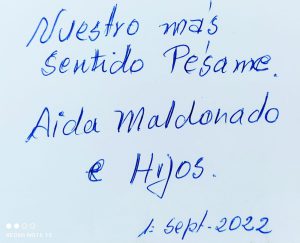 Nuestro más
sentido Pésame.
Aida Maldonado
e Hijos.
1. sept. 2022
REDMI NOTE 10